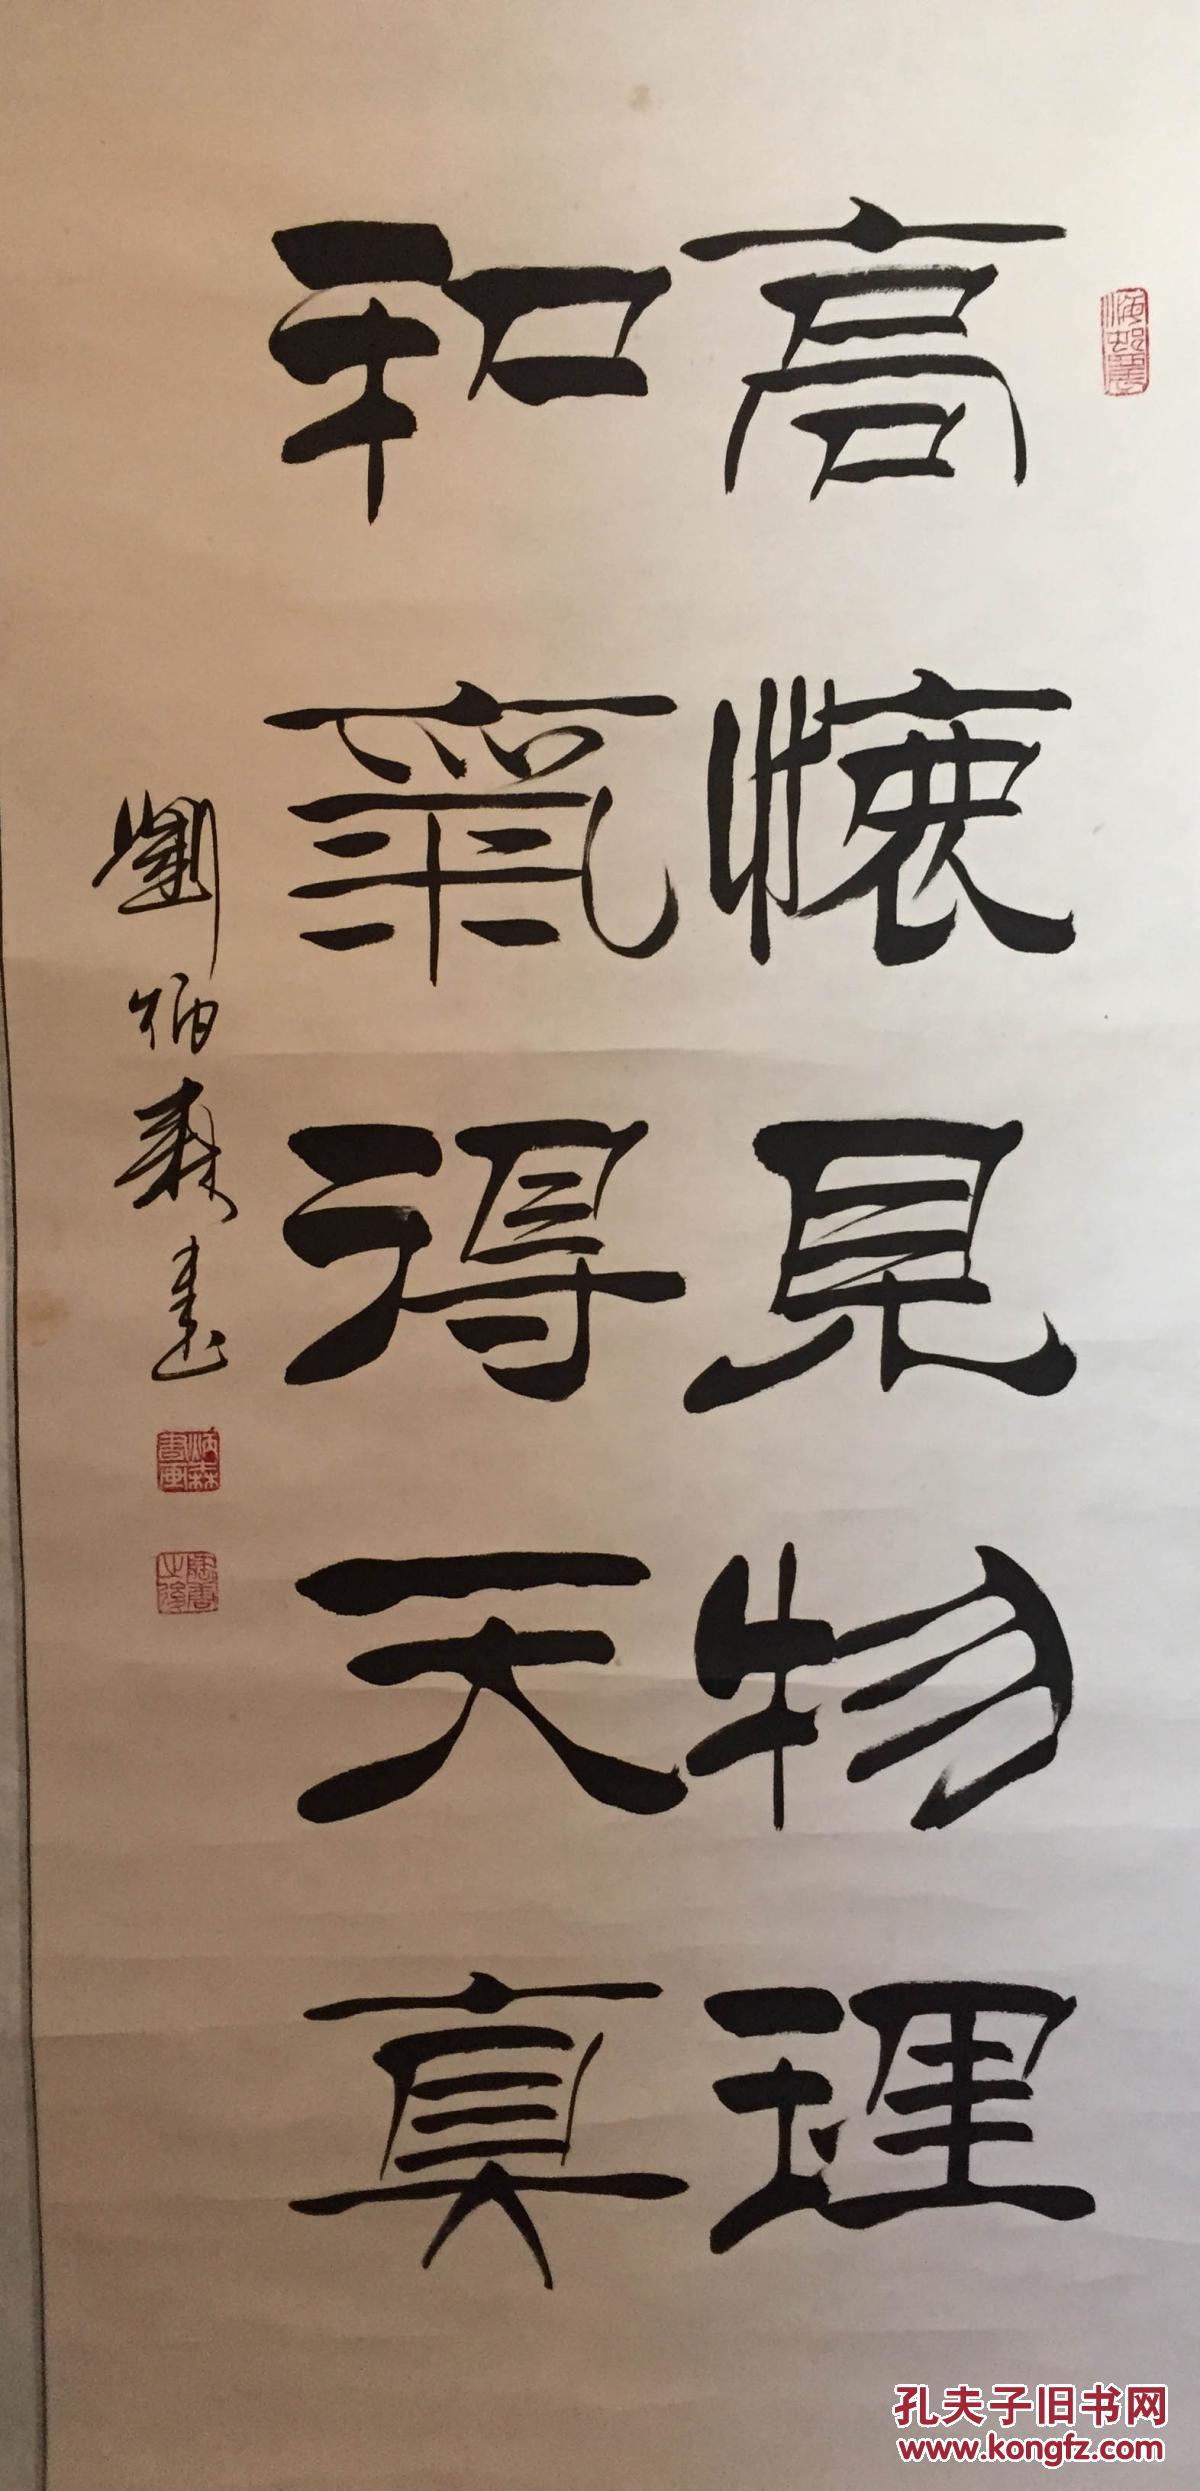 高懷見物理
和氣得天真
劉炳森書
炳森書画
孔夫子旧书网
www.kongfz.com